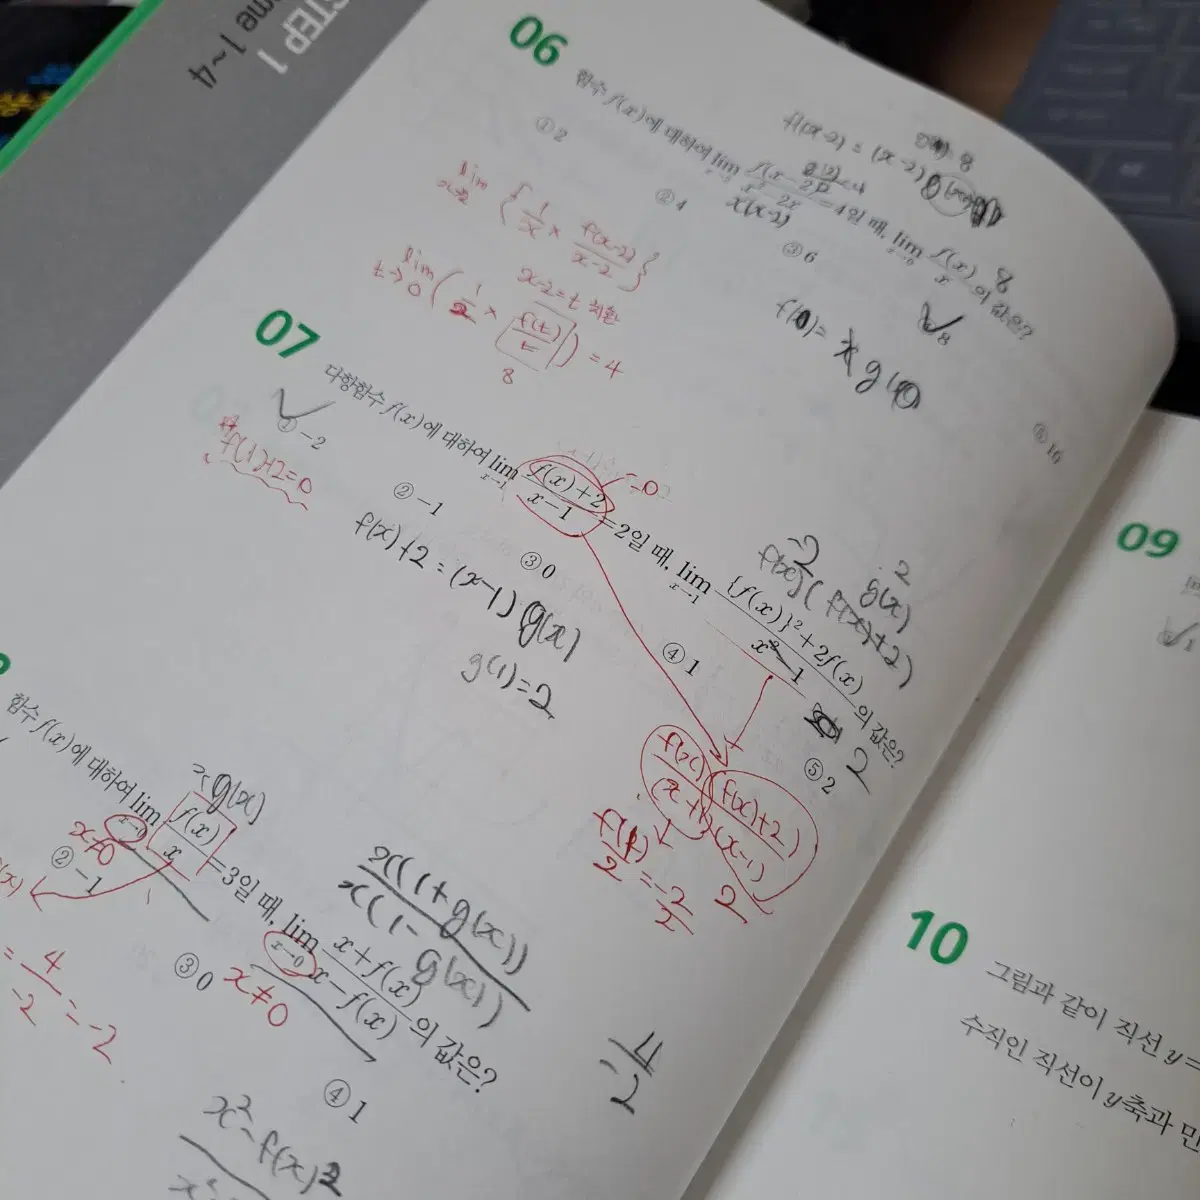 STEP 1
me 1~4
06
함수 f(x)에 대하여 lim f(x-2)/(x²-2x) = 4일 때, lim x→0 f(x)/x 의 값은?
① 2
② 4
③ 6
8
⑤ 16
f(x-2) = (x-2)
8
x(x-2)
8
lim { 1/x × f(x-2)/(x-2) }
x-2=t 치환
lim t→0 ( 1/2 × f(t)/t ) = 4
8
f(0)=
g(0
07
다항함수 f(x)에 대하여 lim x→1 (f(x)+2)/(x-1) = 2일 때, lim x→1 ({f(x)}²+2f(x))/(x²-1) 의 값은?
① -2
② -1
③ 0
④ 1
⑤ 2
f(1)+2=0
f(x)+2 = (x-1) g(x)
g(1)=2
-2
f(x)(f(x)+2)
2
g(x)
2
f(x)/(x+1) (f(x)+2)/(x-1)
f(1)/2 = -2/2
2
함수 f(x)에 대하여 lim x→0 f(x)/x = 3일 때, lim x→0 (x+f(x))/(x-f(x)) 의 값은?
② -1
③ 0
④ 1
g(x)
x≠0
x≠0
x(1+g(x))/x(1-g(x))
= 4/-2 = -2
4/-2
x²-f(x)²
09
10
그림과 같이 직선 y=
수직인 직선이 y축과 만